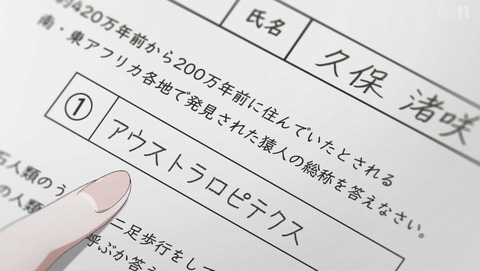 氏名 久保 渚咲
約420万年前から200万年前に住んでいたとされる
南・東アフリカ各地で発見された猿人の総称を答えなさい。
① アウストラロピテクス
人類のう
の人類
二足歩行をして
呼ぶか答え